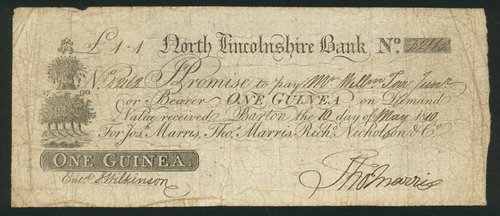 £1.1 North Lincolnshire Bank No.
I Promise to pay Mr. Willm.
17 90
or Bearer ONE GUINEA on Demand
Value received Barton the 10 day of May 1810
For Josh. Marris, Thos. Marris, Richd. Nicholson & Co.
ONE GUINEA.
Entd. J Wilkinson
Thos Marris